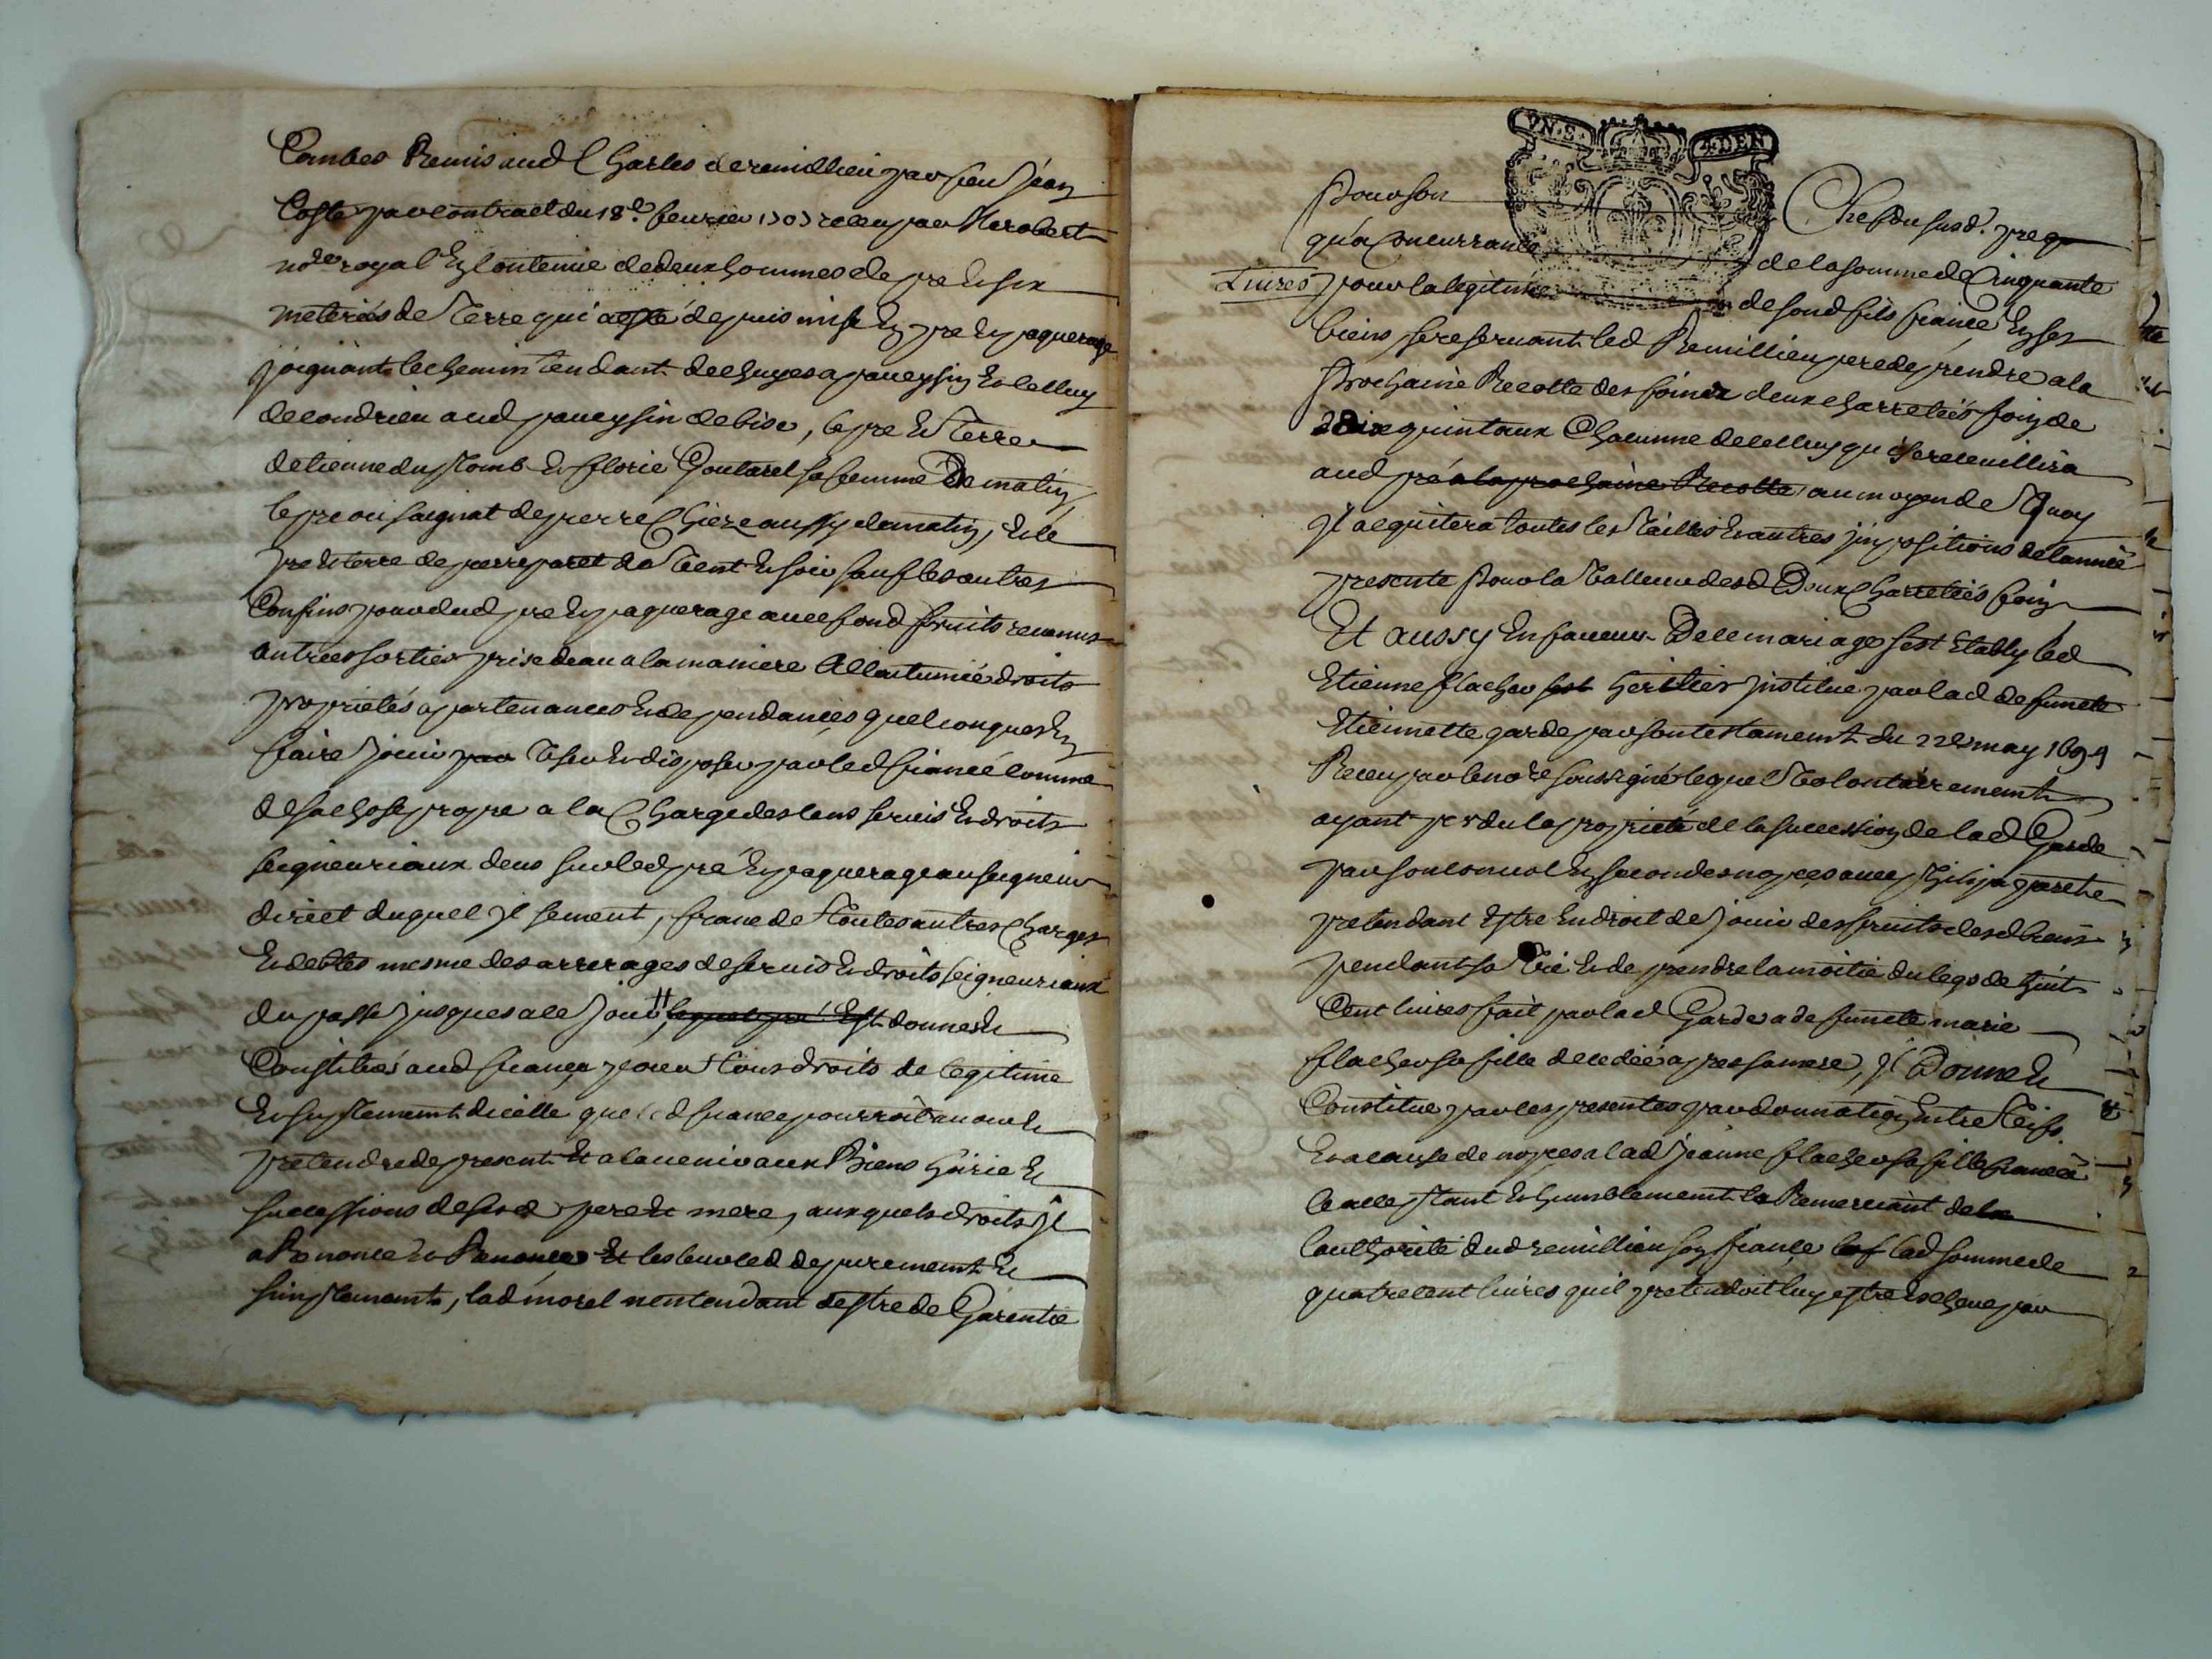 Combes Remis aud Charles de remillieu par feu Jean
Coste par contract du 18e feurier 1707 receu par Me robert
nore royal En contenue de deux hommes de pre & six
meteriés de Terre qui a esté depuis mise En pre En paquerage
joignant le chemin tendant de chuyes a paueysin & celluy
de condrieu aud paueysin de bise, le pre & Terre
detienne du Plomb & florie Goutarel sa femme De matin,
le pre ou saignat de pierre Chieze aussy de matin, & le
pre & terre de pierre paret de Vent & soir sauf les autres
Confins pour dud pre En paquerage auec fond fruits reuenus
antrées sorties prise deau a la maniere Allcutumée droits
proprietés apartenances & dependances quelconques En
faire jouir par User & disposer par led fiancé comme
de sa chose propre a la Charge des cens seruis & droits
seigneuriaux deus sur led pré En paquerage au seigneur
direct duquel Jl se ment, franc de Toutes autres Charges
& debtes mesme des arrerages de seruis & droits seigneuriaux
du passé jusques a ce jour, lequel pré Est donné &
Constitué aud fiancé pour Tous droits de legitime
& suplement dicelle que led fiancé pourroit auoir &
pretendre de present & a lauenir aux Biens hoirie &
successions de sesd pere & mere, auxquels droits Jl
a Renoncé & Renonce & les leur led de purement &
simplement, lad morel nentendant destre de Garentie
VN.S. 4.DEN
Pour son Chef du susd. pre
qu'a Concurrance de la somme de Cinquante
Liures pour la legitime de sond fils fiancé En ses
biens se reseruant led Remillieu pere de prendre a la
Prochaine Recolte des foins deux charretées foin de
dix quintaux Chacunne de celluy qui se receuillira
aud pré a la prochaine Recolte, au moyen de Quoy
Jl acquitera toutes les Tailles & autres jmpositions de lannée
presente Pour la Valleur desd Deux Charretées foin
Et aussy En faueur De ce mariage sest Etably led
Etienne flacher heritier jnstitué par lad defuncte
Etiennette garde par son testament du 22e may 1694
Receu par le nore soussigné lequel Volontairement
ayant perdu la proprieté de la succession de lad Garde
par son conuol En secondes nopces auec
pretendant Estre En droit de jouir des fruits desd biens
pendant sa Vie & de prendre la moitié du legs de huit
Cent liures fait par lad Garde a defuncte marie
flacher sa fille decedée apres sa mere, Jl Donne &
Constitue par les presentes par donnation Entre Vifs
& a cause de nopces a lad Jeanne flacher sa fille fiancée
le acceptant & humblement le Remerciant de
lauthorité dud remillieu son fiancé lad somme de
quatre cent liures quil pretendoit luy estre Echeue par